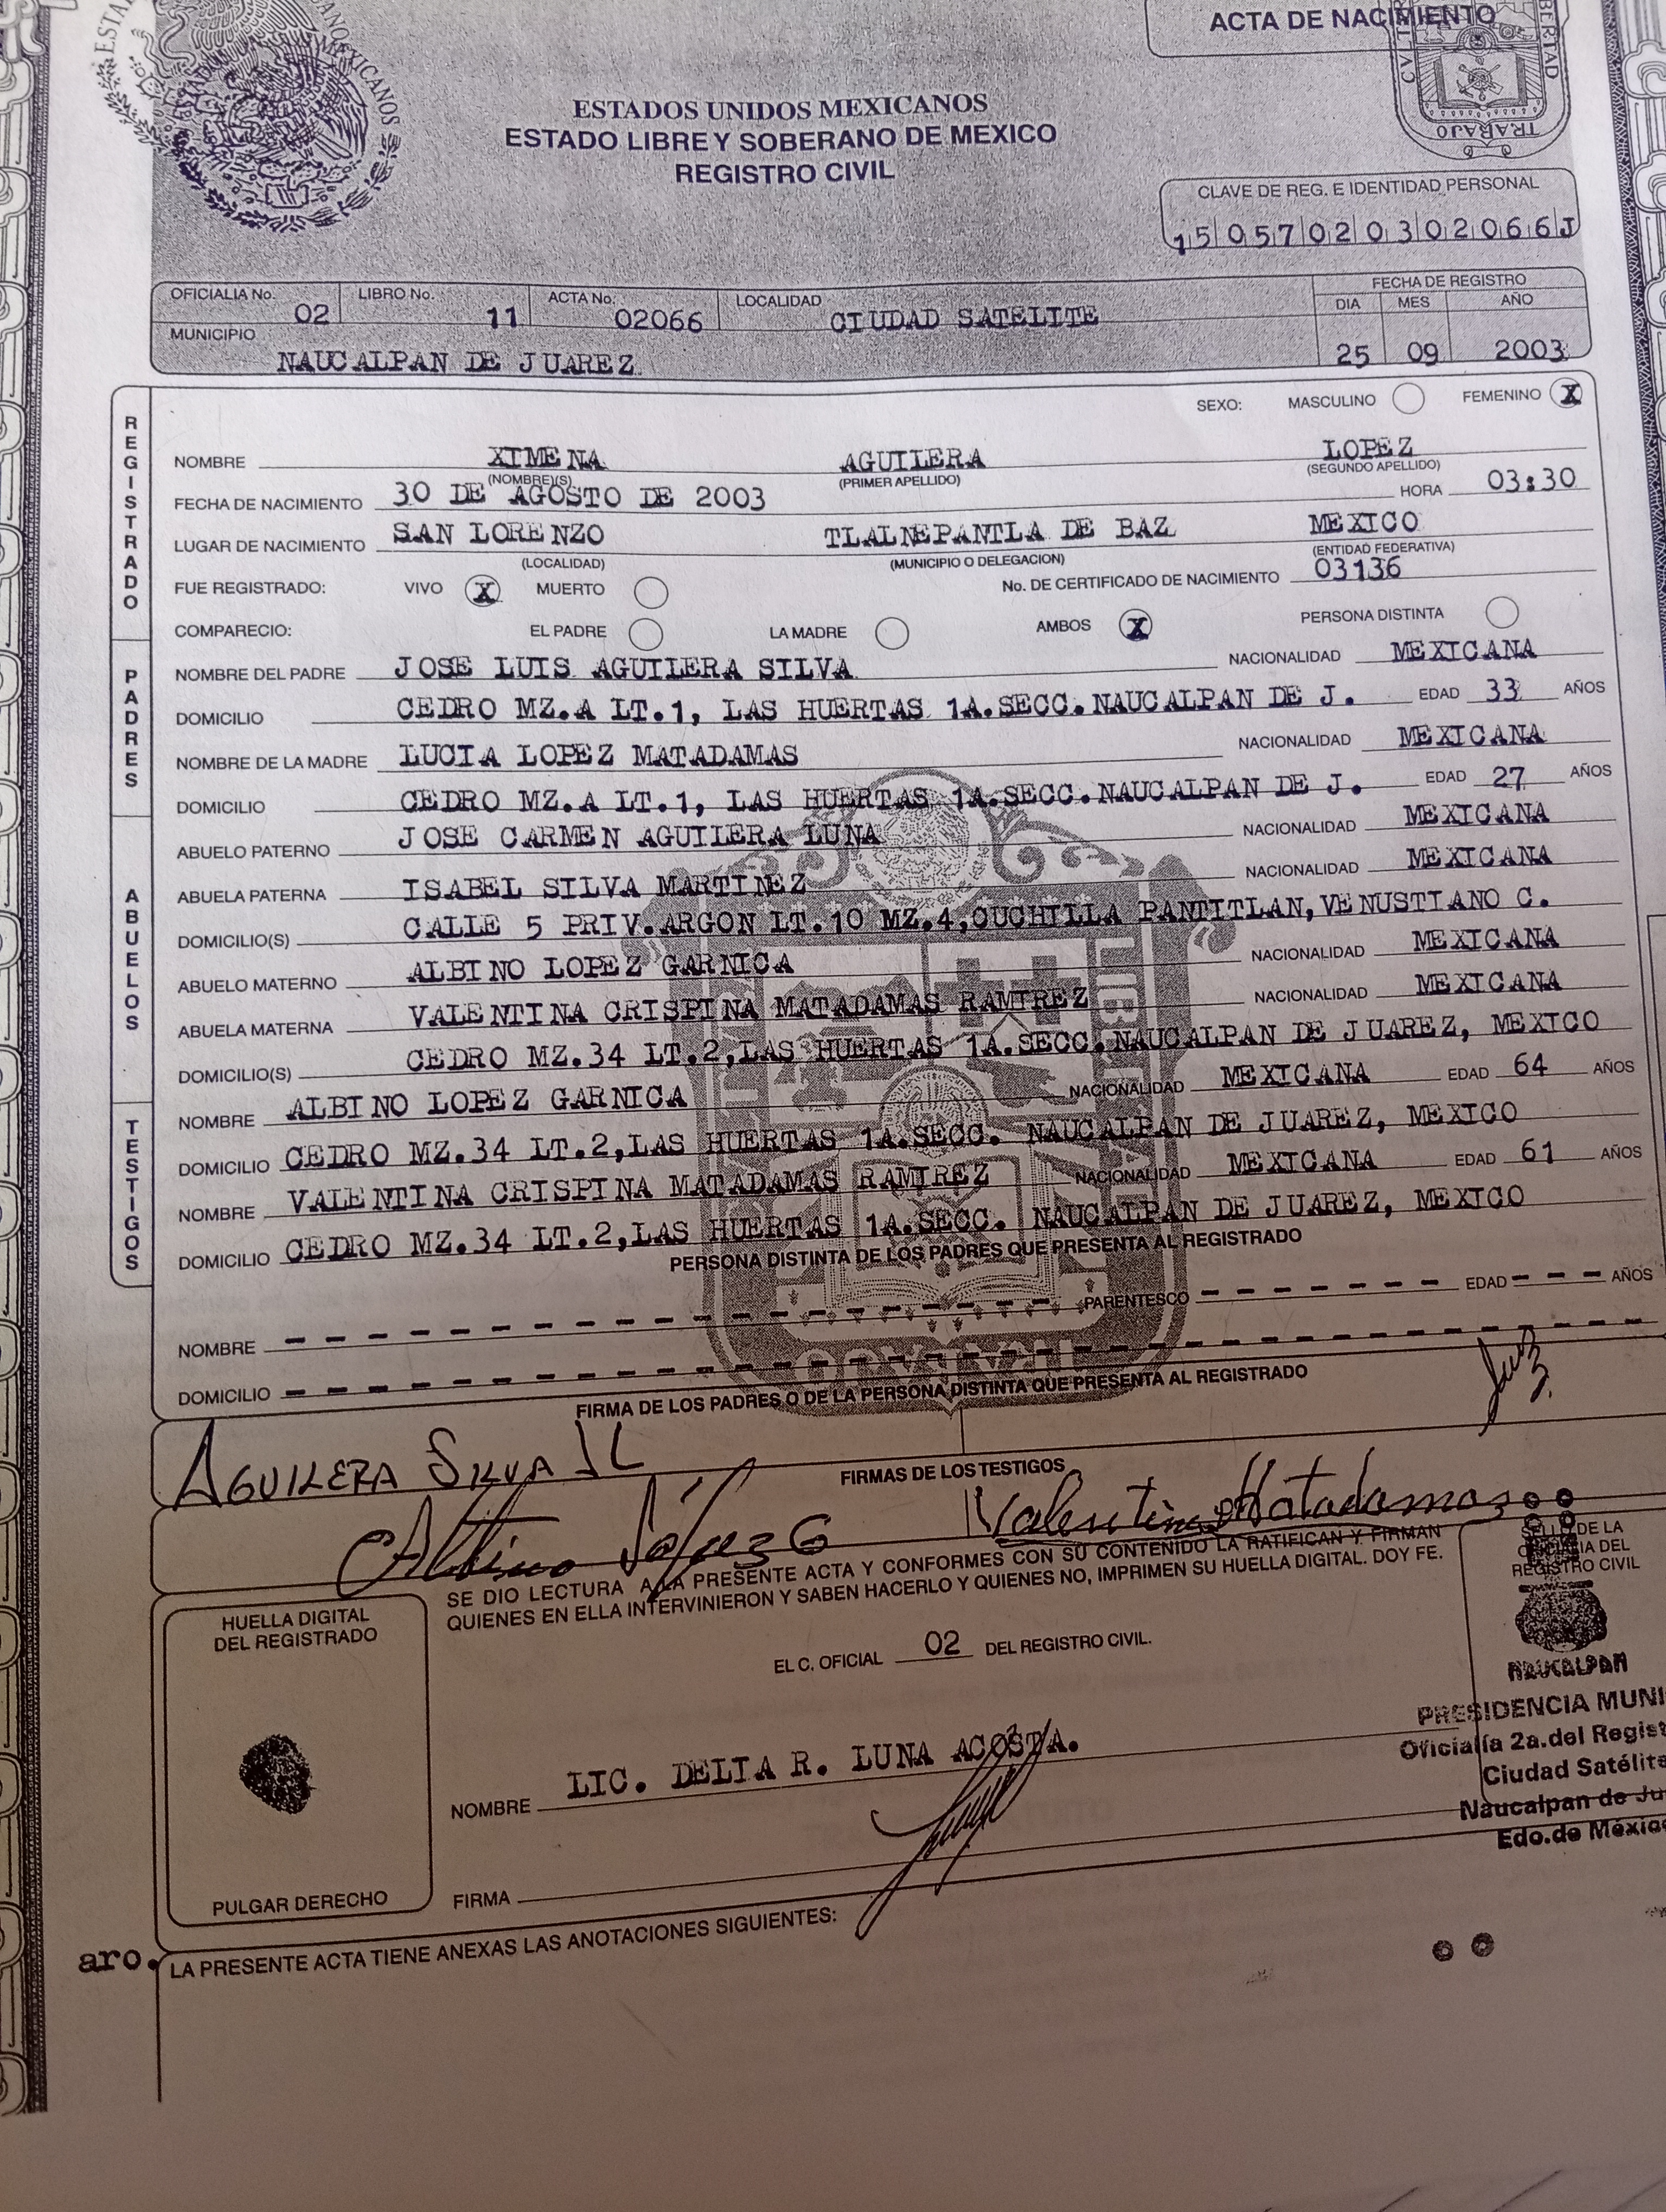 ACTA DE NACIMIENTO
ESTADOS UNIDOS MEXICANOS
ESTADO LIBRE Y SOBERANO DE MEXICO
REGISTRO CIVIL
CLAVE DE REG. E IDENTIDAD PERSONAL
15 057 02 03 02066J
OFICIALIA No. 02 LIBRO No. 11 ACTA No. 02066 LOCALIDAD CIUDAD SATELITE
FECHA DE REGISTRO
DIA MES AÑO
25 09 2003
MUNICIPIO
NAUCALPAN DE JUAREZ
REGISTRADO
SEXO: MASCULINO FEMENINO X
NOMBRE XIMENA AGUILERA LOPEZ
(NOMBRE(S) (PRIMER APELLIDO) (SEGUNDO APELLIDO)
FECHA DE NACIMIENTO 30 DE AGOSTO DE 2003 HORA 03:30
LUGAR DE NACIMIENTO SAN LORENZO TLALNEPANTLA DE BAZ MEXICO
(LOCALIDAD) (MUNICIPIO O DELEGACION) (ENTIDAD FEDERATIVA)
FUE REGISTRADO: VIVO X MUERTO No. DE CERTIFICADO DE NACIMIENTO 03136
COMPARECIO: EL PADRE LA MADRE AMBOS X PERSONA DISTINTA
PADRES
NOMBRE DEL PADRE JOSE LUIS AGUILERA SILVA NACIONALIDAD MEXICANA
DOMICILIO CEDRO MZ.A LT.1, LAS HUERTAS 1A.SECC.NAUCALPAN DE J. EDAD 33 AÑOS
NOMBRE DE LA MADRE LUCIA LOPEZ MATADAMAS NACIONALIDAD MEXICANA
DOMICILIO CEDRO MZ.A LT.1, LAS HUERTAS 1A.SECC.NAUCALPAN DE J. EDAD 27 AÑOS
ABUELOS
ABUELO PATERNO JOSE CARMEN AGUILERA LUNA NACIONALIDAD MEXICANA
ABUELA PATERNA ISABEL SILVA MARTINEZ NACIONALIDAD MEXICANA
DOMICILIO(S) CALLE 5 PRIV.ARGON LT.10 MZ.4,CUCHILLA PANTITLAN,VENUSTIANO C.
ABUELO MATERNO ALBINO LOPEZ GARNICA NACIONALIDAD MEXICANA
ABUELA MATERNA VALENTINA CRISPINA MATADAMAS RAMIREZ NACIONALIDAD MEXICANA
DOMICILIO(S) CEDRO MZ.34 LT.2,LAS HUERTAS 1A.SECC.NAUCALPAN DE JUAREZ, MEXICO
TESTIGOS
NOMBRE ALBINO LOPEZ GARNICA NACIONALIDAD MEXICANA EDAD 64 AÑOS
DOMICILIO CEDRO MZ.34 LT.2,LAS HUERTAS 1A.SECC. NAUCALPAN DE JUAREZ, MEXICO
NOMBRE VALENTINA CRISPINA MATADAMAS RAMIREZ NACIONALIDAD MEXICANA EDAD 61 AÑOS
DOMICILIO CEDRO MZ.34 LT.2,LAS HUERTAS 1A.SECC. NAUCALPAN DE JUAREZ, MEXICO
PERSONA DISTINTA DE LOS PADRES QUE PRESENTA AL REGISTRADO
NOMBRE PARENTESCO EDAD AÑOS
DOMICILIO
FIRMA DE LOS PADRES O DE LA PERSONA DISTINTA QUE PRESENTA AL REGISTRADO
AGUILERA SILVA JL
FIRMAS DE LOS TESTIGOS
Albino López G Valentina Matadamas
SE DIO LECTURA A LA PRESENTE ACTA Y CONFORMES CON SU CONTENIDO LA RATIFICAN Y FIRMAN
QUIENES EN ELLA INTERVINIERON Y SABEN HACERLO Y QUIENES NO, IMPRIMEN SU HUELLA DIGITAL. DOY FE.
HUELLA DIGITAL
DEL REGISTRADO
EL C. OFICIAL 02 DEL REGISTRO CIVIL.
SELLO DE LA
DEL
REGISTRO CIVIL
NAUCALPAN
PRESIDENCIA MUNI
Oficialía 2a.del Regist
Ciudad Satélite
Naucalpan de Ju
Edo.de México
NOMBRE LIC. DELIA R. LUNA ACOSTA.
PULGAR DERECHO
FIRMA
aro.
LA PRESENTE ACTA TIENE ANEXAS LAS ANOTACIONES SIGUIENTES: